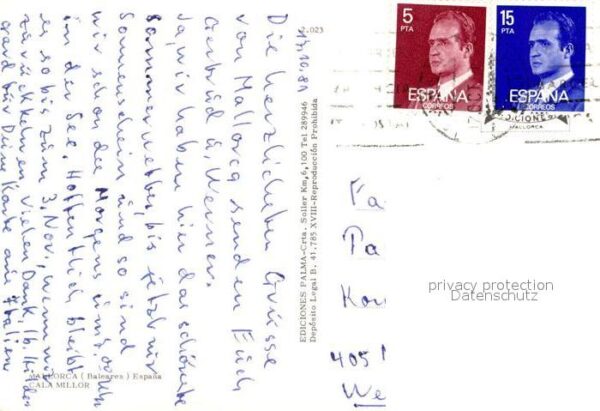 14.10.81
Die herzlichsten Grüsse
von Mallorca senden Euch
Gertrud u. Werner.
Ja, wir haben hier das schönste
Sommerwetter, bis jetzt nur
Sonnenschein und so sind
wir schon des Morgens
in der See. Hoffentlich bleibt
es so bis zum 3. Nov., wenn wir
zurückkehren. Vielen Dank, lb.
auch für Deine Karte aus Italien
MALLORCA (Baleares) España
CALA MILLOR
.023
EDICIONES PALMA-Crta. Soller Km. 6,100 Tel 289946
Depósito Legal B. 41.785 XVIII-Reproducción Prohibida
5
PTA
ESPAÑA
CORREOS
15
PTA
ESPAÑA
CORREOS
EDICIONES
MALLORCA
Fa
Pa
Kon
405
We
privacy protection
Datenschutz